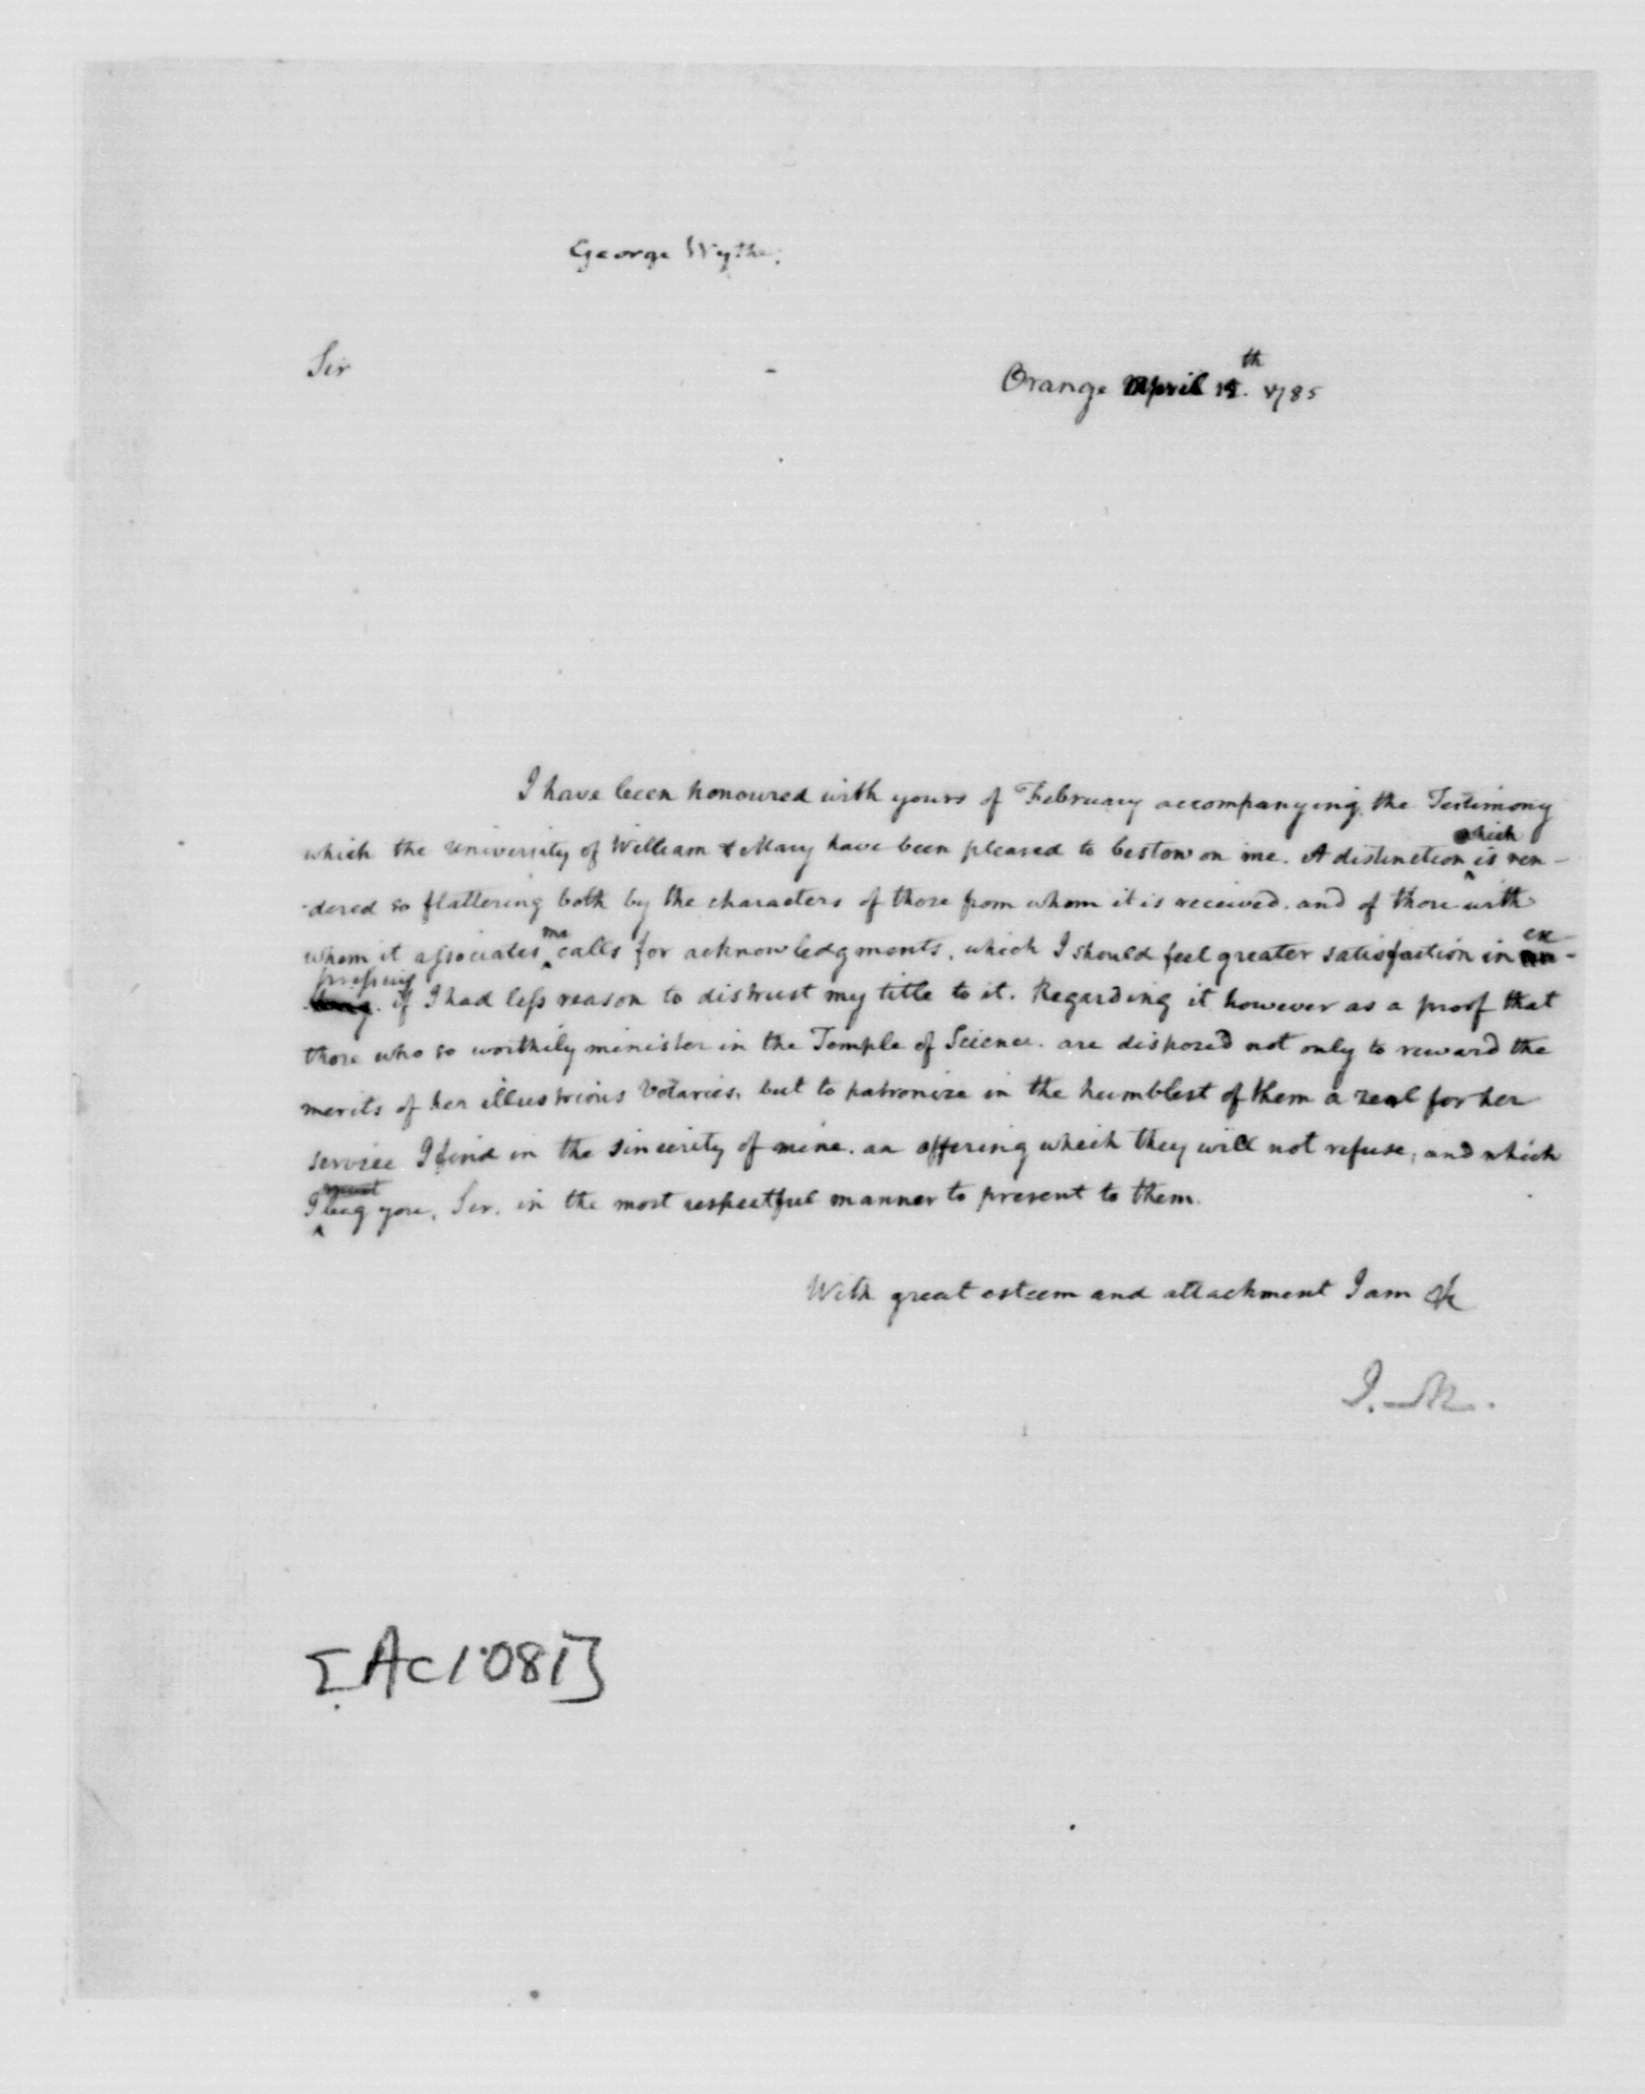 George Wythe,
Sir
Orange April 15th. 1785
I have been honoured with yours of February accompanying the Testimony
which the University of William & Mary have been pleased to bestow on me. A distinction which is ren-
-dered so flattering both by the characters of those from whom it is received. and of those with
whom it associates me calls for acknowledgments, which I should feel greater satisfaction in ex-
pressing. if I had less reason to distrust my title to it. Regarding it however as a proof that
those who so worthily minister in the Temple of Science. are disposed not only to reward the
merits of her illustrious Votaries, but to patronize in the humblest of them a zeal for her
service I find in the sincerity of mine. an offering which they will not refuse, and which
I beg you, Sir, in the most respectful manner to present to them.
With great esteem and attachment I am &c
J. M.
[Ac 1081]